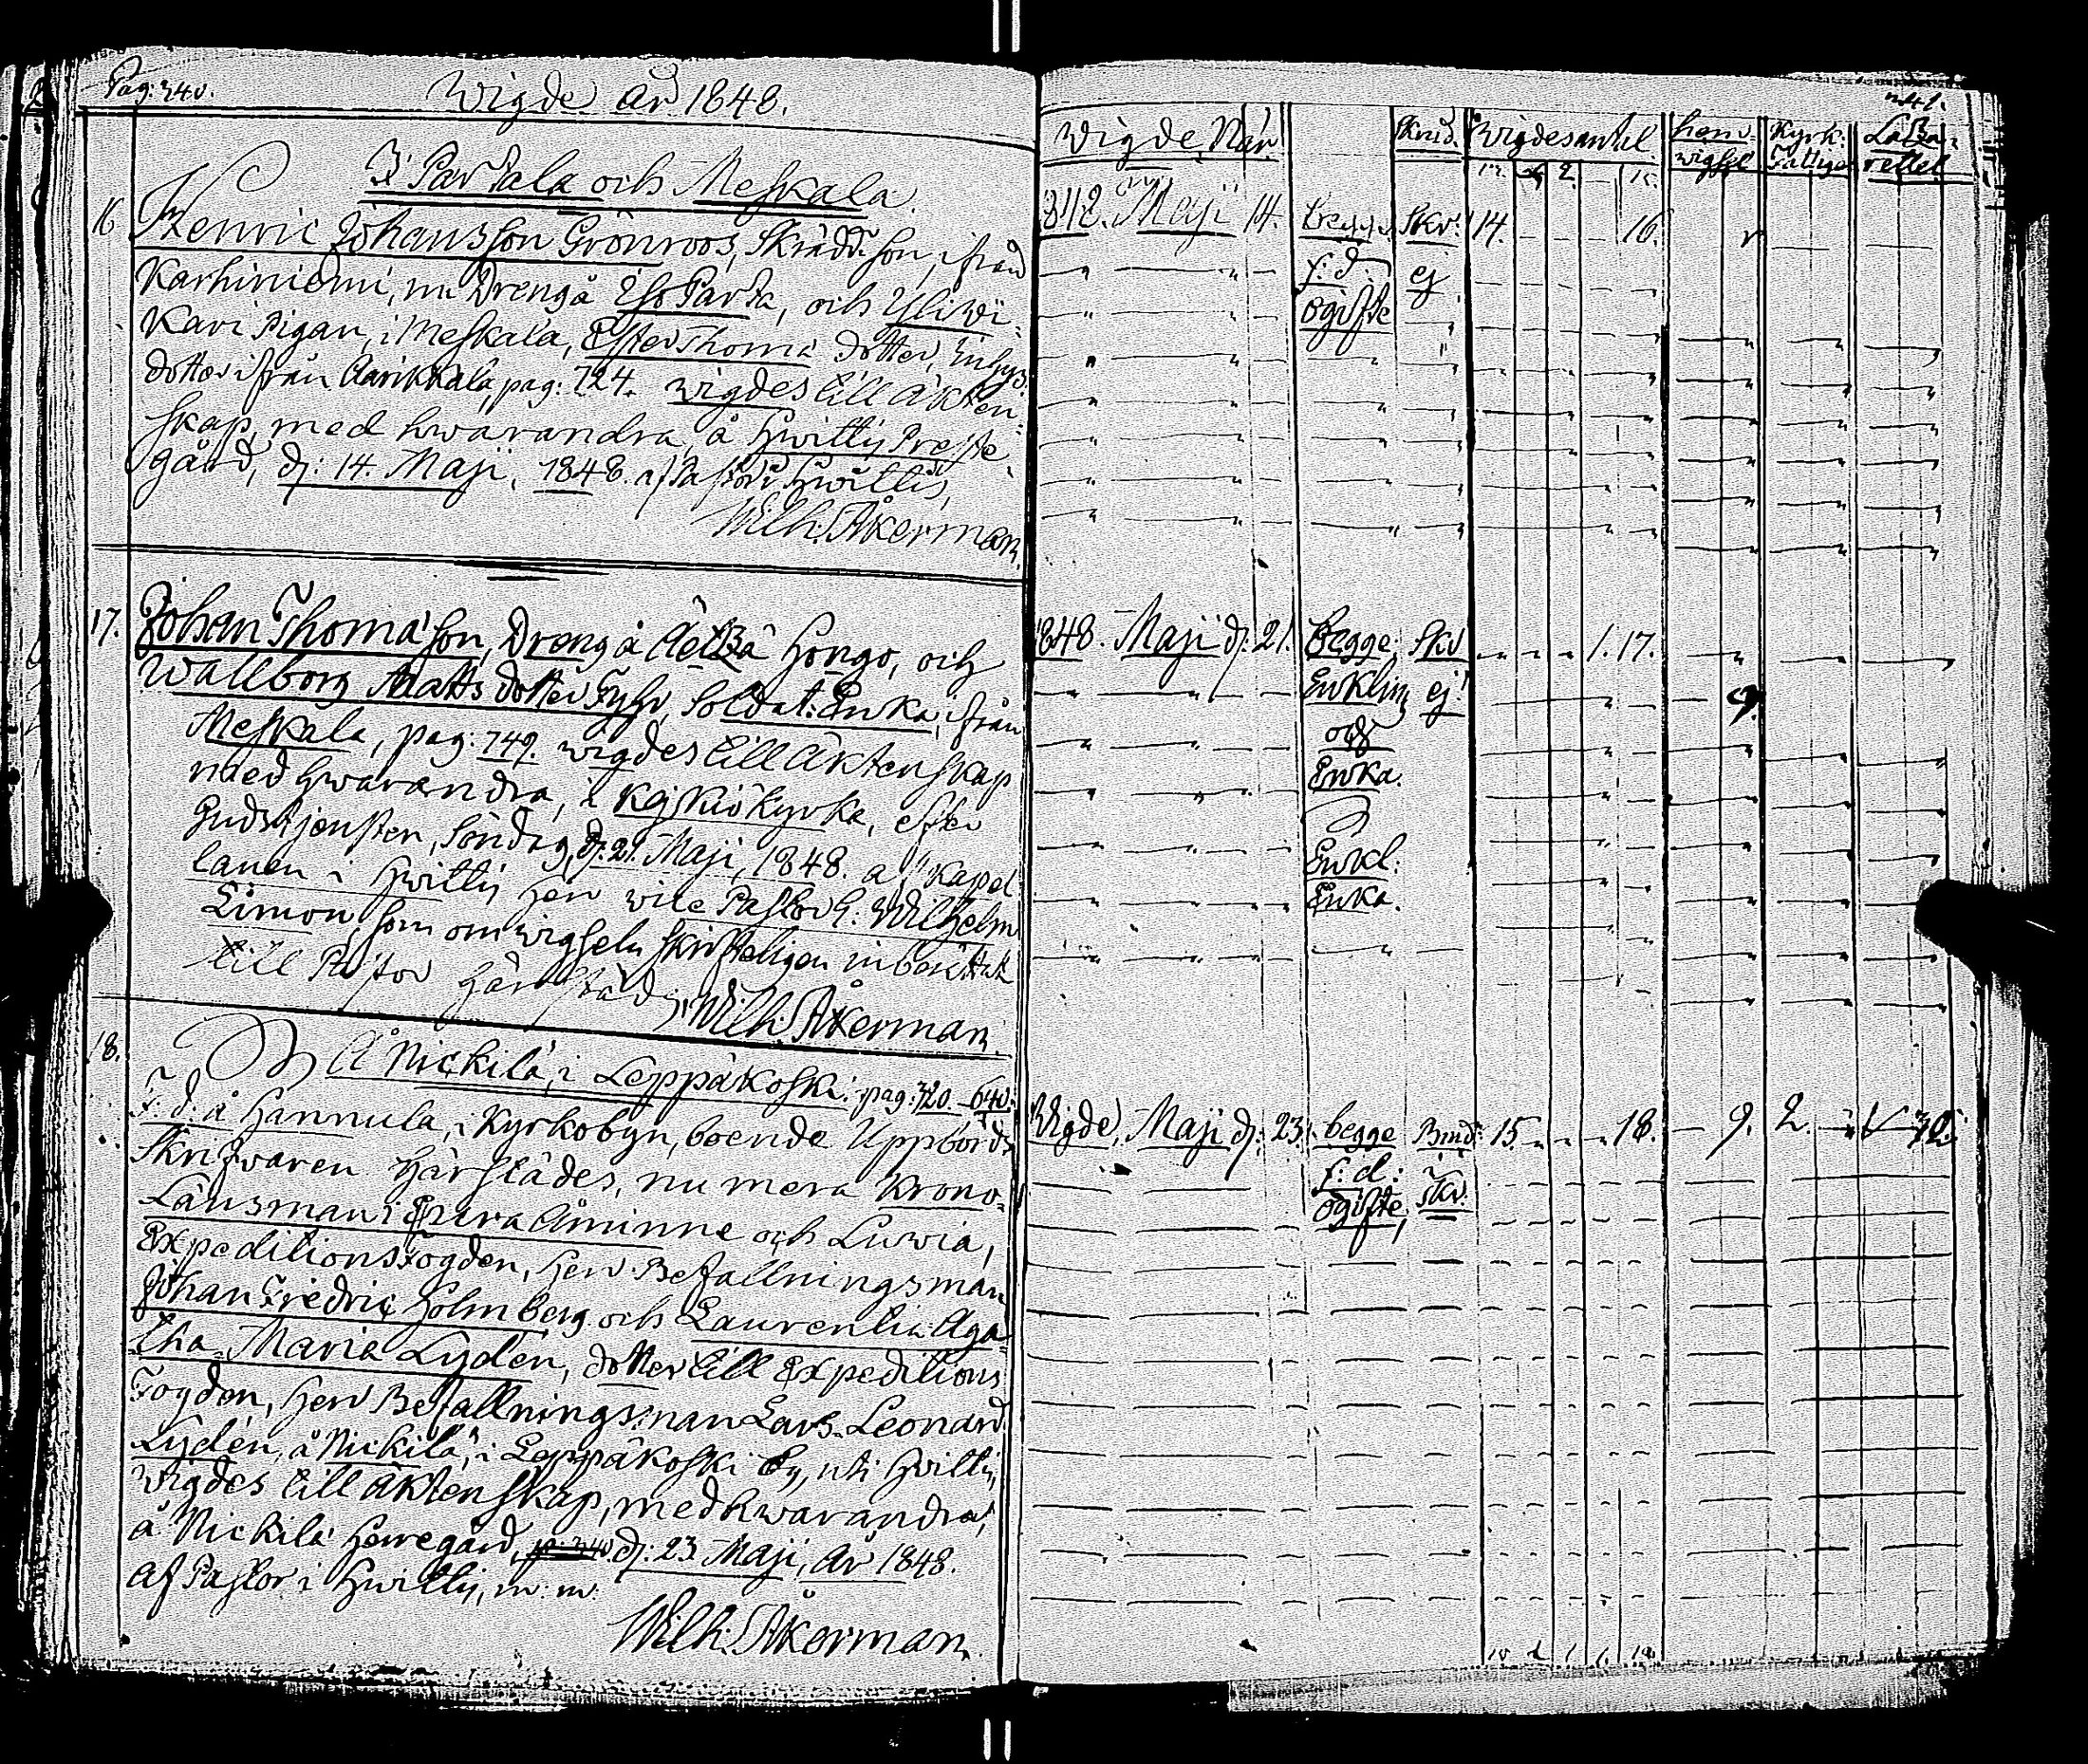 Pag: 240.
Wigde år 1848.
I Partala och Meskala.
16
Henric Johansson Grönroos, Skrädd: son, ifrån
Karhiniemi, nu Dreng å Iso Parta, och Yliwi-
Kari Pigan, i Meskala, Ester Thomä dotter,
dotter ifrån Aarikkala, pag: 724. wigdes till äkten-
skap, med hwarandra, å Hwittis Preste-
gård, d: 14. Maji, 1848. af Pastor i Hwittis,
Wilh. Åkerman
17.
Johan Thomä son, Dreng å Hongo, och
Wallborg Matts dotter Fyhr, Soldat: Enka, ifrån
Meskala, pag: 749. wigdes till äktenskap
med hwarandra, i Kejkiö kyrka, efter
Gudstjensten, Söndag, d: 21. Maji, 1848. af Kapel
lanen i Hwittis Herr vice Pastor G: Wilhelm
Limon, som om wigseln skrifteligen inberättat
till Pastor härstädes, Wilh. Åkerman
18.
Å Nickilä, i Leppäkoski. pag: 320. 640.
F: d: å Hannula, i Kyrkobyn, boende Uppbörds
Skrifwaren härstädes, numera Krono-
Länsman i Eura Åminne och Luwia,
Expeditionsfogden, Herr Befallningsman
Johan Fredric Holmberg och Laurentia Aga
tha Maria Lydén, dotter till Expeditions
Fogden, Herr Befallningsman Lars Leonard
Lydén, å Nickilä, i Leppäkoski by, uti Hwittis,
wigdes till äktenskap, med hwarandra,
å Nickilä Herregård, d: 23. Maji, år 1848.
af Pastor i Hwittis, m: m:
Wilh. Åkerman
241.
Wigde När. Skrud. Wigdes antal. hem- Kyrk: Laza-
wigsel Fattiga rettet
Maji 14. begge Skr: 14. 16.
f: d: ej
ogifte
1848. Maji d: 21. Begge Skr 1. 17.
Enkling ej
och
Enka.
Enkl:
Enka.
Wigde, Maji d: 23. begge Brud: 15. 18. 9. 2.
f: d: skr.
ogifte,